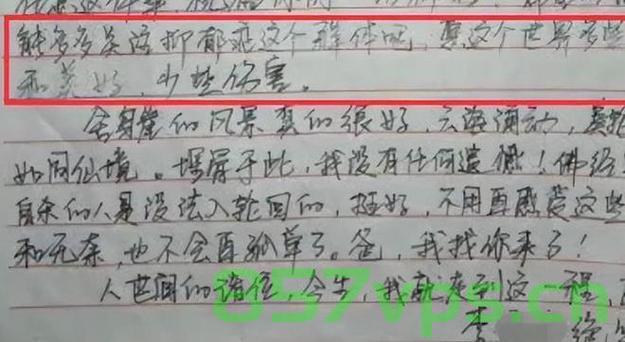 能多多关注抑郁症这个群体吧,愿这个世界多些
和美好,少些伤害。
舍身崖的风景真的很好,云海涌动,
如同仙境。埋屑于此,我没有任何遗憾!佛经
自杀的人是没法入轮回的,挺好,不用再感受这些
和无奈,也不会再孤单了。爸,我找你来了!
人世间的诸位,今生,我就来到这一程,
李
857vps.cn